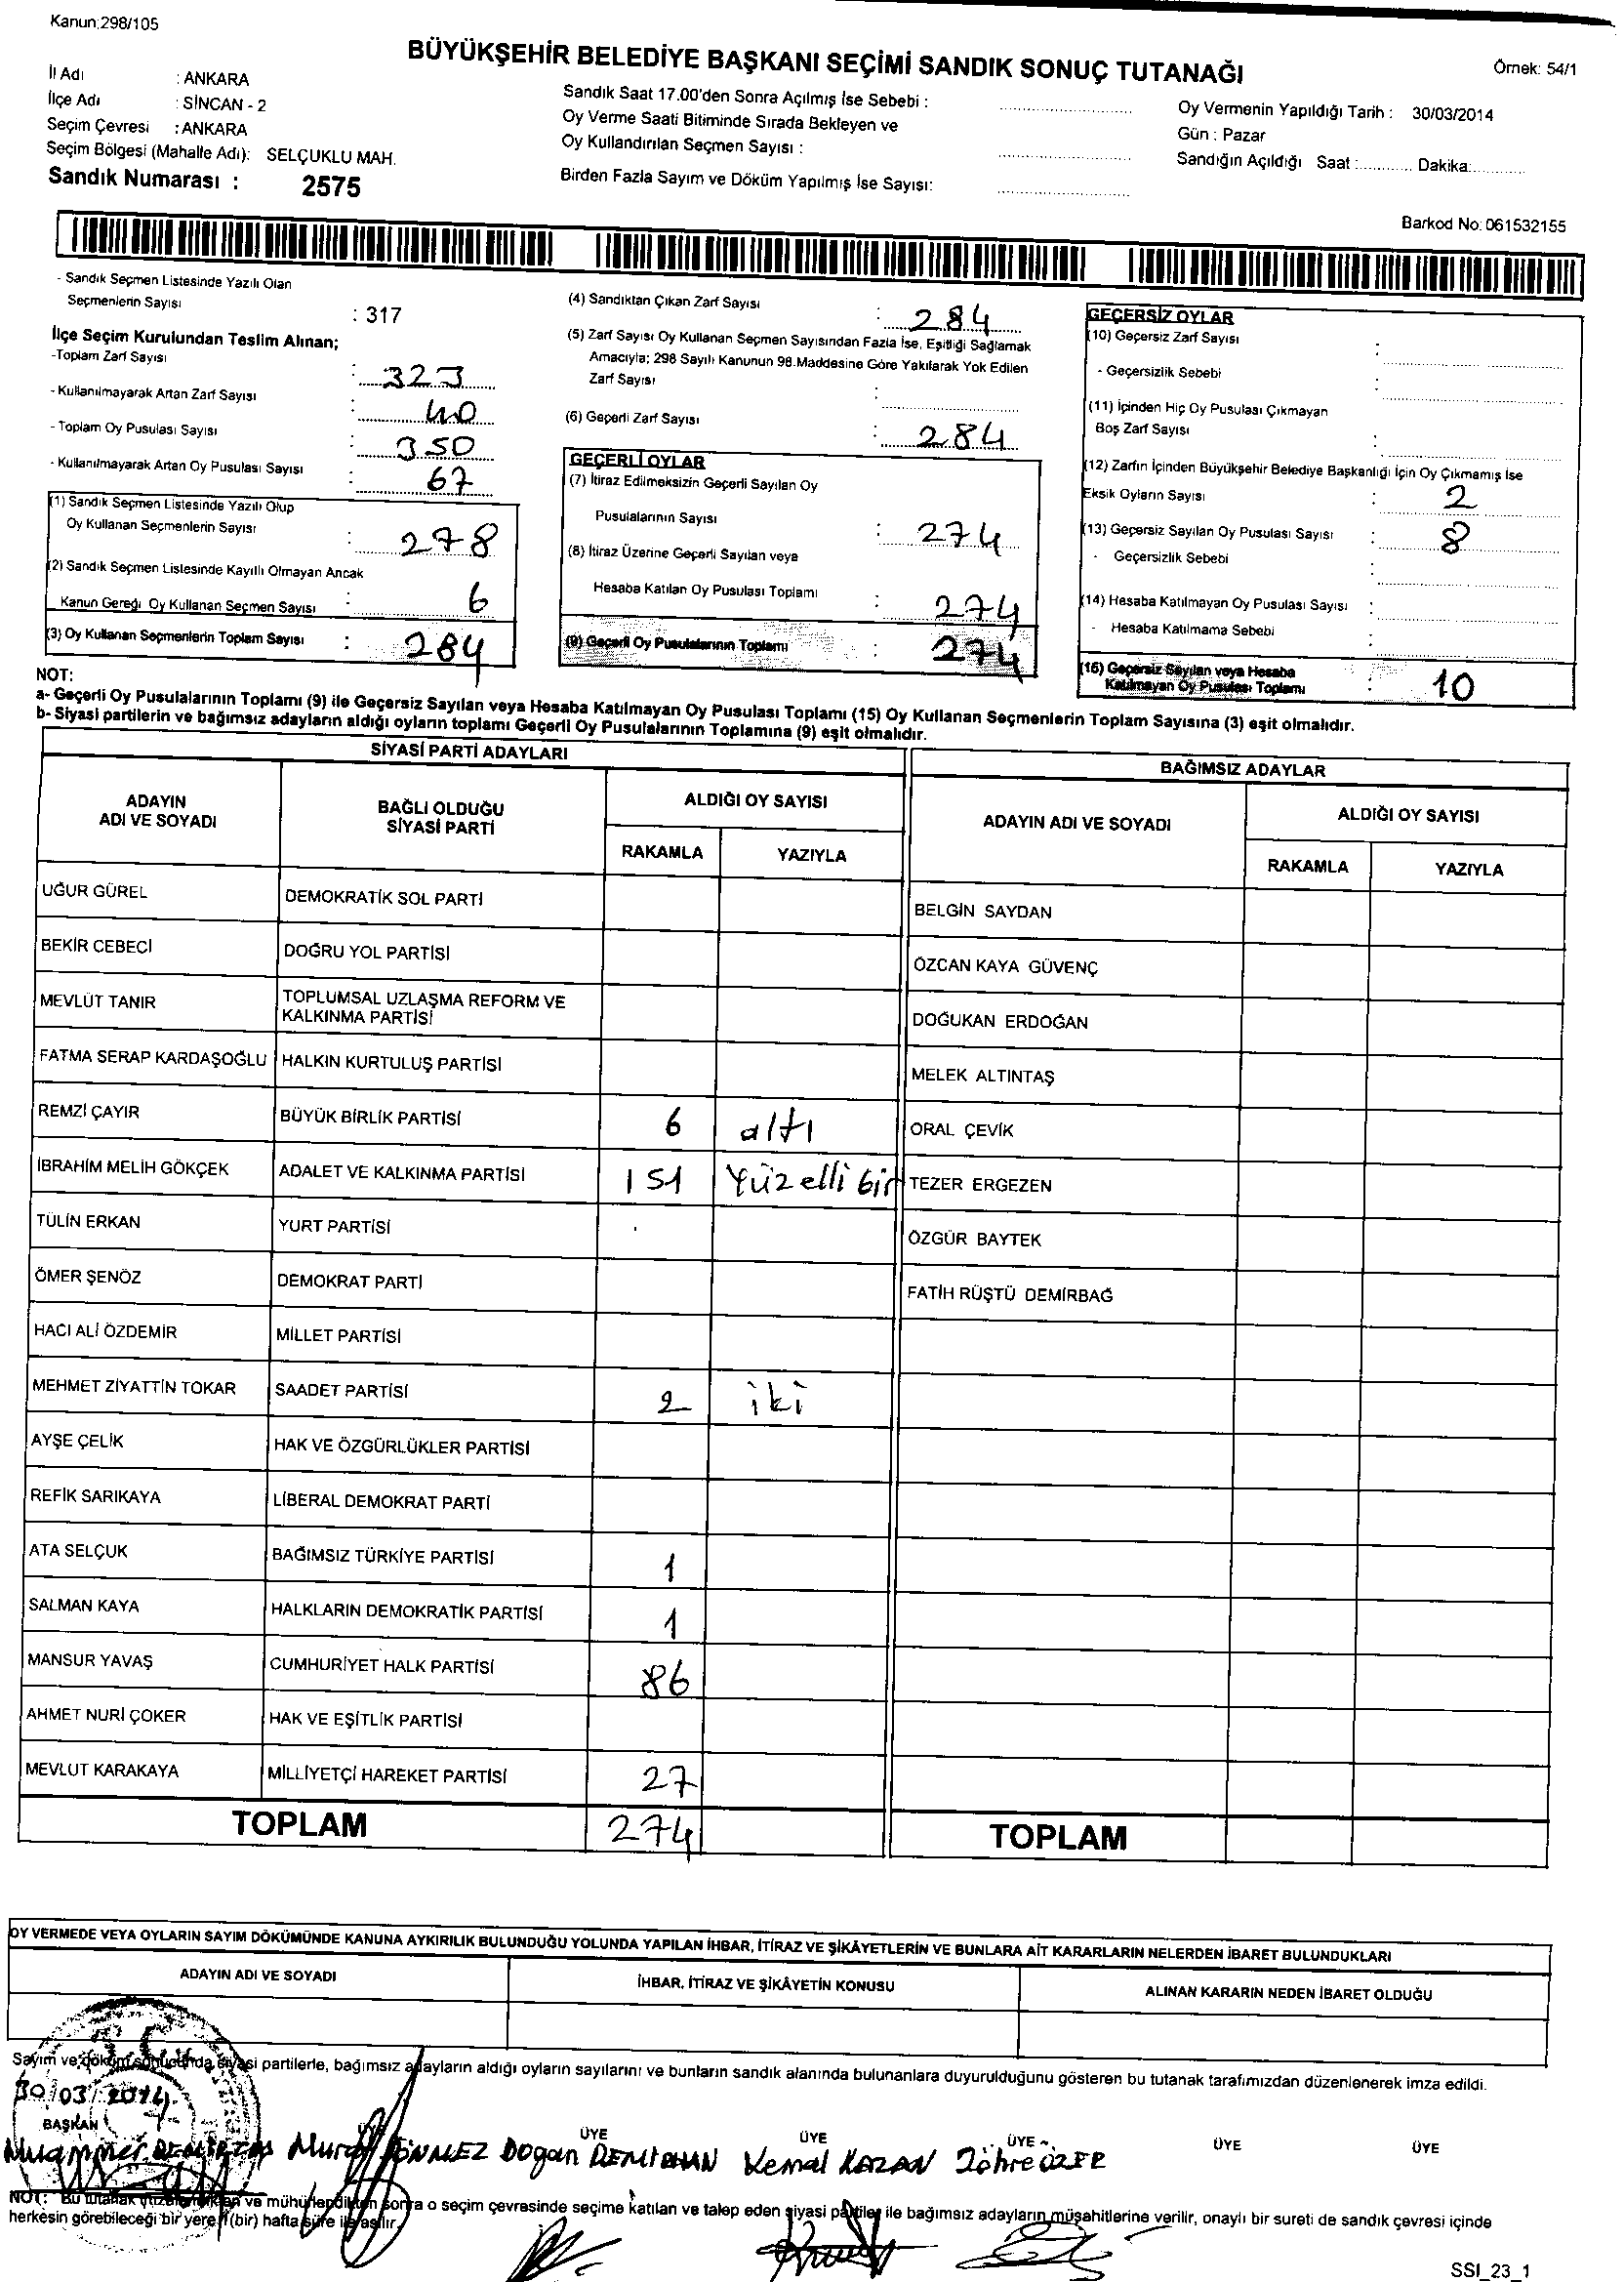 Kanun:298/105
BÜYÜKŞEHİR BELEDİYE BAŞKANI SEÇİMİ SANDIK SONUÇ TUTANAĞI
Örnek: 54/1
İl Adı : ANKARA
İlçe Adı : SİNCAN - 2
Seçim Çevresi : ANKARA
Seçim Bölgesi (Mahalle Adı): SELÇUKLU MAH.
Sandık Numarası : 2575
Sandık Saat 17.00'den Sonra Açılmış İse Sebebi :
Oy Verme Saati Bitiminde Sırada Bekleyen ve
Oy Kullandırılan Seçmen Sayısı :
Birden Fazla Sayım ve Döküm Yapılmış İse Sayısı:
Oy Vermenin Yapıldığı Tarih : 30/03/2014
Gün : Pazar
Sandığın Açıldığı Saat :............ Dakika:............
Barkod No: 061532155
- Sandık Seçmen Listesinde Yazılı Olan
Seçmenlerin Sayısı : 317
İlçe Seçim Kurulundan Teslim Alınan;
-Toplam Zarf Sayısı : 323
- Kullanılmayarak Artan Zarf Sayısı : 40
- Toplam Oy Pusulası Sayısı : 350
- Kullanılmayarak Artan Oy Pusulası Sayısı : 67
(1) Sandık Seçmen Listesinde Yazılı Olup
Oy Kullanan Seçmenlerin Sayısı : 278
(2) Sandık Seçmen Listesinde Kayıtlı Olmayan Ancak
Kanun Gereği Oy Kullanan Seçmen Sayısı : 6
(3) Oy Kullanan Seçmenlerin Toplam Sayısı : 284
(4) Sandıktan Çıkan Zarf Sayısı : 284
(5) Zarf Sayısı Oy Kullanan Seçmen Sayısından Fazla İse, Eşitliği Sağlamak
Amacıyla; 298 Sayılı Kanunun 98.Maddesine Göre Yakılarak Yok Edilen
Zarf Sayısı :
(6) Geçerli Zarf Sayısı : 284
GEÇERLİ OYLAR
(7) İtiraz Edilmeksizin Geçerli Sayılan Oy
Pusulalarının Sayısı : 274
(8) İtiraz Üzerine Geçerli Sayılan veya
Hesaba Katılan Oy Pusulası Toplamı : 274
(9) Geçerli Oy Pusulalarının Toplamı : 274
GEÇERSİZ OYLAR
(10) Geçersiz Zarf Sayısı :
- Geçersizlik Sebebi :
(11) İçinden Hiç Oy Pusulası Çıkmayan
Boş Zarf Sayısı :
(12) Zarfın İçinden Büyükşehir Belediye Başkanlığı İçin Oy Çıkmamış İse
Eksik Oyların Sayısı : 2
(13) Geçersiz Sayılan Oy Pusulası Sayısı : 8
- Geçersizlik Sebebi :
(14) Hesaba Katılmayan Oy Pusulası Sayısı :
- Hesaba Katılmama Sebebi :
(15) Geçersiz Sayılan veya Hesaba
Katılmayan Oy Pusulası Toplamı : 10
NOT:
a- Geçerli Oy Pusulalarının Toplamı (9) ile Geçersiz Sayılan veya Hesaba Katılmayan Oy Pusulası Toplamı (15) Oy Kullanan Seçmenlerin Toplam Sayısına (3) eşit olmalıdır.
b- Siyasi partilerin ve bağımsız adayların aldığı oyların toplamı Geçerli Oy Pusulalarının Toplamına (9) eşit olmalıdır.
SİYASİ PARTİ ADAYLARI
ADAYIN ADI VE SOYADI BAĞLI OLDUĞU SİYASİ PARTİ ALDIĞI OY SAYISI
RAKAMLA YAZIYLA
UĞUR GÜREL DEMOKRATİK SOL PARTİ
BEKİR CEBECİ DOĞRU YOL PARTİSİ
MEVLÜT TANIR TOPLUMSAL UZLAŞMA REFORM VE
KALKINMA PARTİSİ
FATMA SERAP KARDAŞOĞLU HALKIN KURTULUŞ PARTİSİ
REMZİ ÇAYIR BÜYÜK BİRLİK PARTİSİ 6 altı
İBRAHİM MELİH GÖKÇEK ADALET VE KALKINMA PARTİSİ 151 Yüzelli bir
TÜLİN ERKAN YURT PARTİSİ
ÖMER ŞENÖZ DEMOKRAT PARTİ
HACI ALİ ÖZDEMİR MİLLET PARTİSİ
MEHMET ZİYATTİN TOKAR SAADET PARTİSİ 2 iki
AYŞE ÇELİK HAK VE ÖZGÜRLÜKLER PARTİSİ
REFİK SARIKAYA LİBERAL DEMOKRAT PARTİ
ATA SELÇUK BAĞIMSIZ TÜRKİYE PARTİSİ 1
SALMAN KAYA HALKLARIN DEMOKRATİK PARTİSİ 1
MANSUR YAVAŞ CUMHURİYET HALK PARTİSİ 86
AHMET NURİ ÇOKER HAK VE EŞİTLİK PARTİSİ
MEVLUT KARAKAYA MİLLİYETÇİ HAREKET PARTİSİ 27
TOPLAM 274
BAĞIMSIZ ADAYLAR
ADAYIN ADI VE SOYADI ALDIĞI OY SAYISI
RAKAMLA YAZIYLA
BELGİN SAYDAN
ÖZCAN KAYA GÜVENÇ
DOĞUKAN ERDOĞAN
MELEK ALTINTAŞ
ORAL ÇEVİK
TEZER ERGEZEN
ÖZGÜR BAYTEK
FATİH RÜŞTÜ DEMİRBAĞ
TOPLAM
OY VERMEDE VEYA OYLARIN SAYIM DÖKÜMÜNDE KANUNA AYKIRILIK BULUNDUĞU YOLUNDA YAPILAN İHBAR, İTİRAZ VE ŞİKÂYETLERİN VE BUNLARA AİT KARARLARIN NELERDEN İBARET BULUNDUKLARI
ADAYIN ADI VE SOYADI İHBAR, İTİRAZ VE ŞİKÂYETİN KONUSU ALINAN KARARIN NEDEN İBARET OLDUĞU
Sayım ve döküm sonucunda siyasi partilerle, bağımsız adayların aldığı oyların sayılarını ve bunların sandık alanında bulunanlara duyurulduğunu gösteren bu tutanak tarafımızdan düzenlenerek imza edildi.
30/03/2014
BAŞKAN ÜYE ÜYE ÜYE ÜYE ÜYE ÜYE
Muammer Murat SÖNMEZ Dogan DEMİRHAN Kemal KAZAN Zöhre ÖZER
NOT: Bu tutanak ve mühürlendikten sonra o seçim çevresinde seçime katılan ve talep eden siyasi partiler ile bağımsız adayların müşahitlerine verilir, onaylı bir sureti de sandık çevresi içinde
herkesin görebileceği bir yere 1 (bir) hafta süre ile asılır.
SSI_23_1